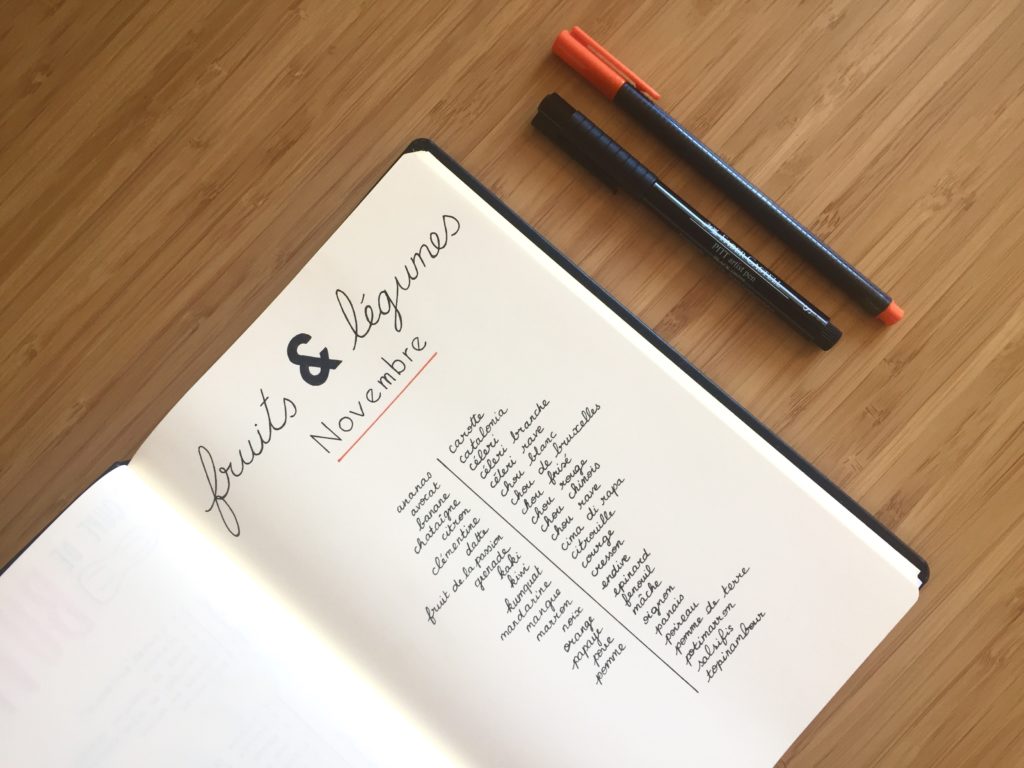 fruits & légumes
Novembre
ananas
avocat
banane
chataîgne
citron
clémentine
datte
fruit de la passion
grenade
kaki
kiwi
kumquat
mandarine
mangue
marron
noix
orange
papaye
poire
pomme
carotte
catalonia
céleri branche
céleri rave
chou blanc
chou de bruxelles
chou frisé
chou rouge
chou chinois
chou rave
cima di rapa
citrouille
courge
cresson
endive
épinard
fenouil
mâche
oignon
panais
poireau
pomme de terre
potimarron
salsifis
topinambour
PITT artist pen
S